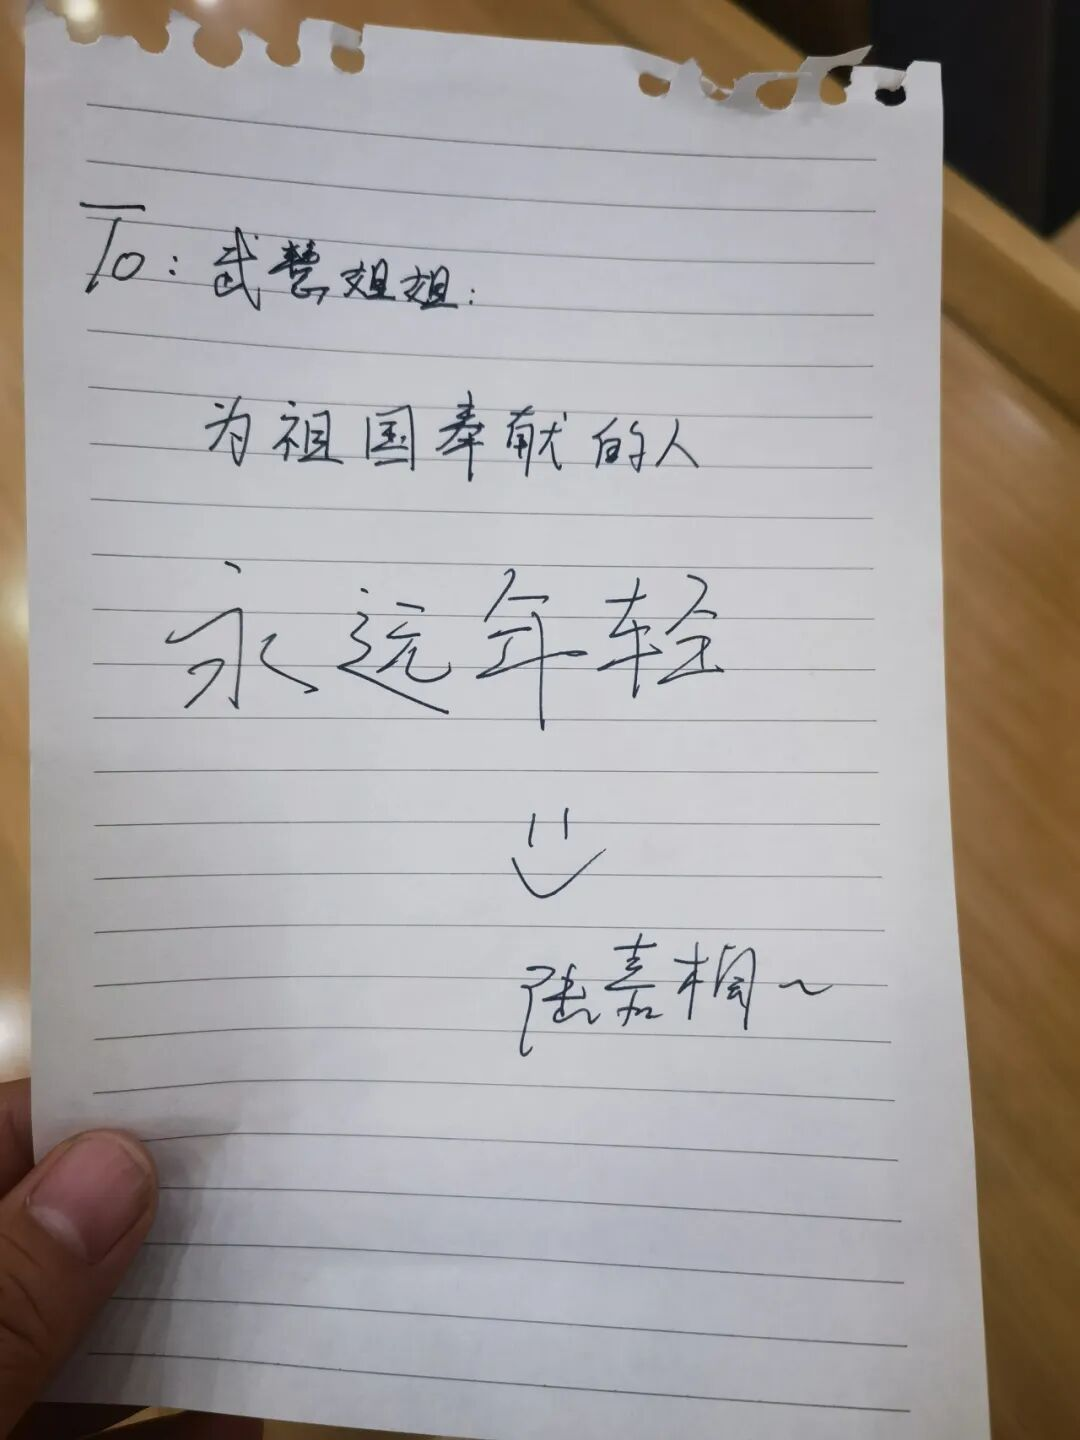 To：武慧姐姐：
为祖国奉献的人
永远年轻
陆嘉桐~